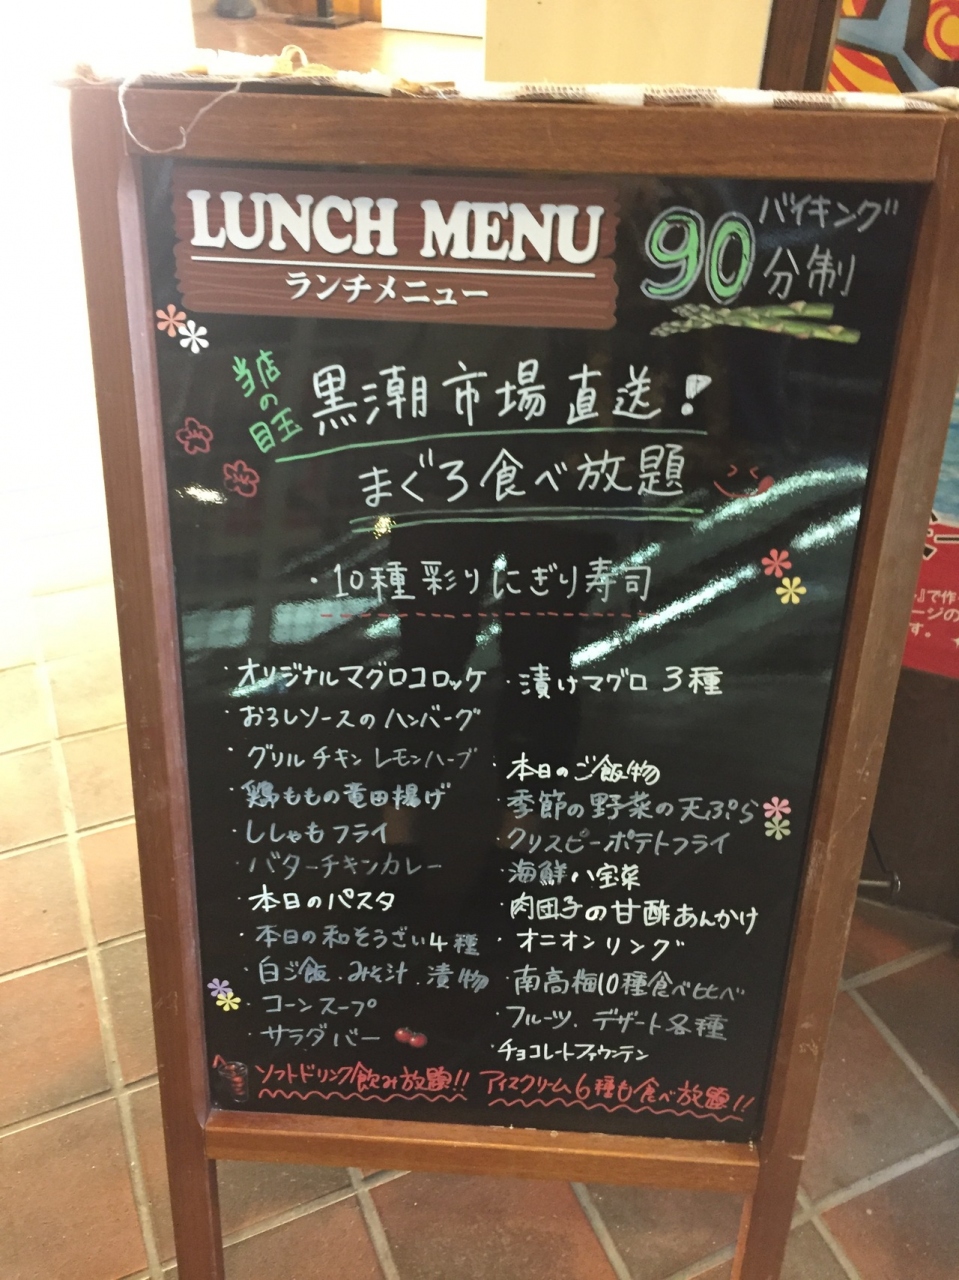 LUNCH MENU
ランチメニュー
バイキング
90分制
当店の目玉
黒潮市場直送!
まぐろ食べ放題
・10種彩りにぎり寿司
・オリジナルマグロコロッケ
・おろしソースのハンバーグ
・グリルチキンレモンハーブ
・鶏ももの竜田揚げ
・ししゃもフライ
・バターチキンカレー
・本日のパスタ
・本日の和そうざい4種
・白ご飯.みそ汁.漬物
・コーンスープ
・サラダバー
・漬けマグロ 3種
・本日のご飯物
・季節の野菜の天ぷら
・クリスピーポテトフライ
・海鮮八宝菜
・肉団子の甘酢あんかけ
・オニオンリング
・南高梅10種食べ比べ
・フルーツ.デザート各種
・チョコレートファウンテン
ソフトドリンク飲み放題!! アイスクリーム6種も食べ放題!!
』で作
ージの
す。